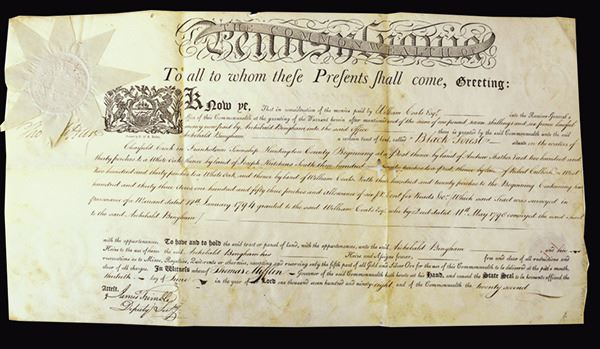 THE COMMONWEALTH OF
Pennsylvania
To all to whom these Presents shall come, Greeting:
Know ye, That in consideration of the monies paid by William Coats Esqr. into the Receiver-General's
Office of this Commonwealth at the granting of the Warrant herein after mentioned of the sum of one pound seven shillings and six pence lawful
money now paid by Archibald Bingham into the said office there is granted by the said Commonwealth unto the said
Archibald Bingham a certain tract of land, called "Black Forest" situate on the waters of
Clearfield Creek in Frankstown Township Huntingdon County Beginning at a Post thence by land of Andrew East two hundred and
thirty perches to a White Oak thence by land of Joseph Hutchins South three hundred perches to a Post thence by land of Robert West
two hundred and thirty perches to a White Oak and thence by land of William Coats North three hundred and twenty perches to the Beginning Containing four
hundred and thirty three Acres one hundred and fifty three perches and allowance of six Per Cent for Roads &c. Which said tract was surveyed in
pursuance of a Warrant dated 17th January 1794 granted to the said William Coats Esqr. who by deed dated 11th May 1796 conveyed the said tract
to the said Archibald Bingham
with the appurtenances. To have and to hold the said tract or parcel of land, with the appurtenances, unto the said Archibald Bingham and his
Heirs to the use of him the said Archibald Bingham his Heirs and Assigns forever, free and clear of all restrictions and
reservations as to Mines, Royalties, Quit-rents or otherwise, excepting and reserving only the fifth part of all Gold and Silver Ore for the use of this Commonwealth to be delivered at the pit's mouth,
clear of all charges. In Witness whereof Thomas Mifflin Governor of the said Commonwealth hath hereto set his Hand, and caused the State Seal to be hereunto affixed the
thirtieth day of June in the year of our Lord one thousand seven hundred and ninety eight and of the Commonwealth the twenty second
Attest.
James Trimble
Deputy Secy.
Tho Mifflin